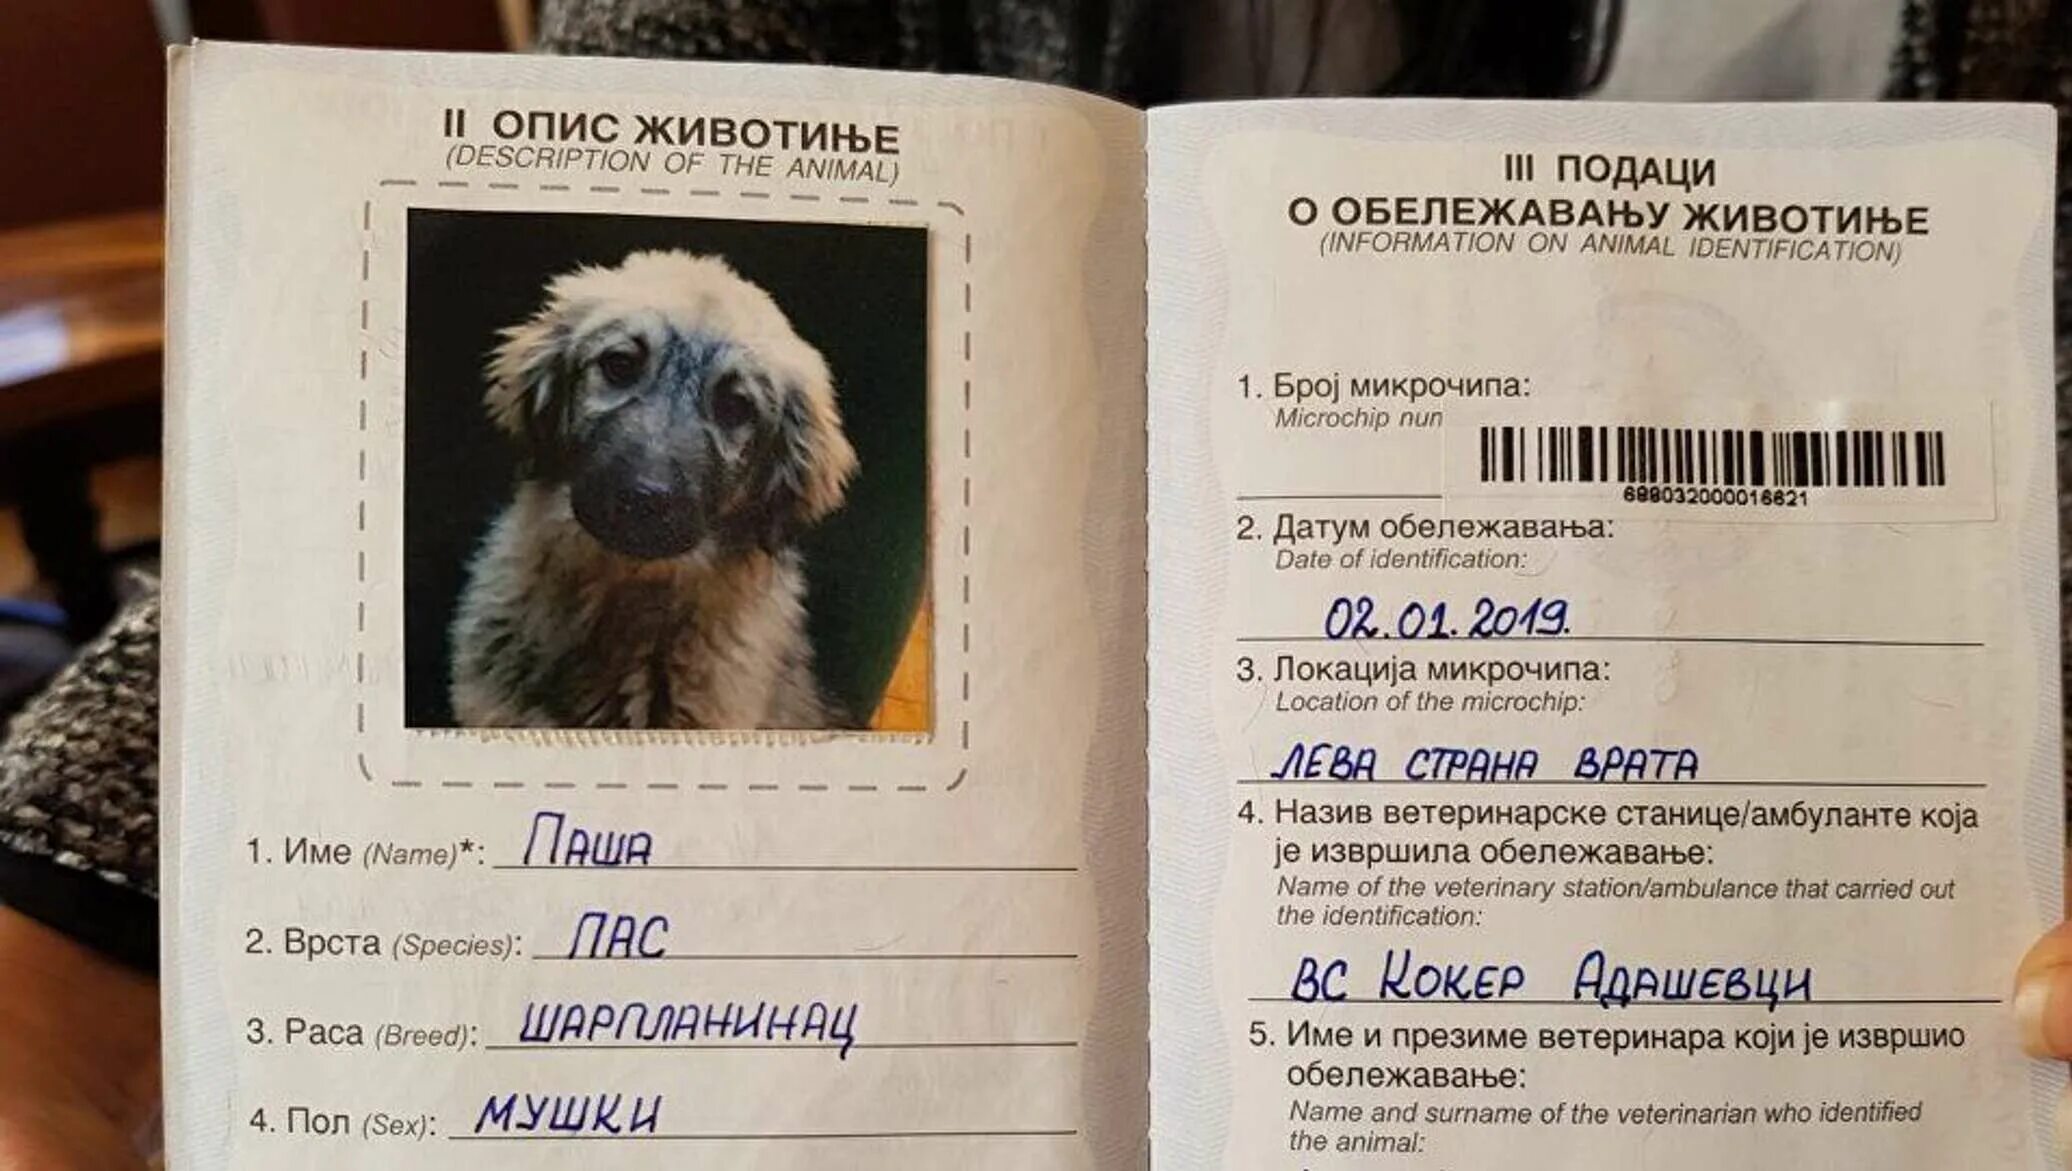 II ОПИС ЖИВОТИЊЕ
(DESCRIPTION OF THE ANIMAL)
1. Име (Name)*: Паша
2. Врста (Species): ПАС
3. Раса (Breed): ШАРПЛАНИНАЦ
4. Пол (Sex): МУШКИ
III ПОДАЦИ
О ОБЕЛЕЖАВАЊУ ЖИВОТИЊЕ
(INFORMATION ON ANIMAL IDENTIFICATION)
1. Број микрочипа:
Microchip num
688032000016621
2. Датум обележавања:
Date of identification:
02.01.2019.
3. Локација микрочипа:
Location of the microchip:
ЛЕВА СТРАНА ВРАТА
4. Назив ветеринарске станице/амбуланте која
је извршила обележавање:
Name of the veterinary station/ambulance that carried out
the identification:
ВС КОКЕР АДАШЕВЦИ
5. Име и презиме ветеринара који је извршио
обележавање:
Name and surname of the veterinarian who identified
the animal: